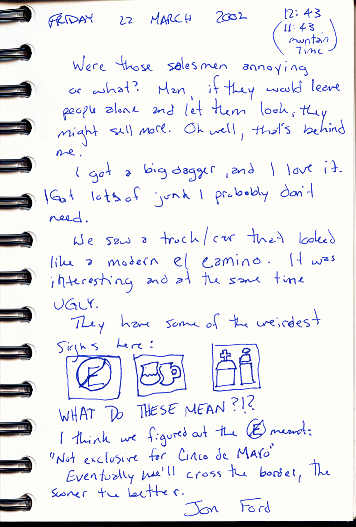 FRIDAY 22 MARCH 2002
12:43
(11:43
mountain
Time)
Were those salesmen annoying
or what? Man, if they would leave
people alone and let them look, they
might sell more. Oh well, that's behind
me.
I got a big dagger, and I love it.
I got lots of junk I probably don't
need.
We saw a truck/car that looked
like a modern el camino. It was
interesting and at the same time
UGLY.
They have some of the weirdest
signs here:
E
WHAT DO THESE MEAN?!?
I think we figured out the E meant:
"Not exclusive for Cinco de Mayo"
Eventually we'll cross the border, the
sooner the better.
Jon Ford